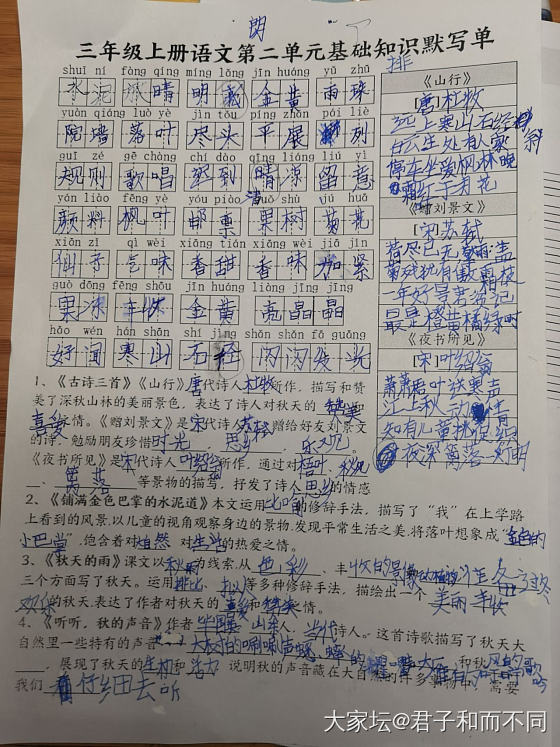 三年级上册语文第二单元基础知识默写单
shuǐ ní fàng qíng míng lǎng jīn huáng yǔ zhū
水泥 放晴 明 金黄 雨珠
yuàn qiáng luò yè jìn tóu píng zhǎn pái liè
院墙 落叶 尽头 平展 列
排
guī zé gē chàng chí dào qíng liáng liú yì
规则 歌唱 迟到 晴凉 留意
yán liào fēng yè yóu piào
颜料 枫叶 邮票 果树 菊花
xiān zǐ qì wèi xiāng tián xiāng wèi jiā jǐn
仙子 气味 香甜 香味 加紧
guǒ dòng fēng shōu jīn huáng liàng jīng jīng
果冻 丰收 金黄 亮晶晶
hǎo wén hán shān shí jìng shǎn shǎn fā guāng
好闻 寒山 石径 闪闪发光
《山行》
[唐]杜牧
远上寒山石径斜
生处有人家
停车坐爱枫林晚
霜 红于 花
《赠刘景文》
[宋]苏轼
荷尽已无 盖
菊残犹有傲霜枝
一年好景君 记
最是橙黄橘绿时
《夜书所见》
[宋]叶绍翁
萧萧 叶送寒声
江上秋 动 情
知有儿童挑促织
夜深篱落一 明
1、《古诗三首》《山行》唐代诗人杜牧所作，描写和赞
美了深秋山林的美丽景色，表达了诗人对秋天的赞美
喜爱之情。《赠刘景文》是宋代苏轼赠给好友刘景文
的诗，勉励朋友珍惜时光、 、乐观。
《夜书所见》是宋代诗人叶绍翁所作，通过对梧叶、秋
、篱落等景物的描写，抒发了诗人思乡的情感
2、《铺满金色巴掌的水泥道》本文运用比喻的修辞手法，描写了“我”在上学路
上看到的风景,以儿童的视角观察身边的景物,发现平常生活之美,将落叶想象成“金色的
小巴掌”,饱含着对自然 对生活的热爱之情。
3、《秋天的雨》课文以秋雨为线索,从色彩、丰收的景
三个方面写了秋天。运用排比、拟人等多种修辞手法，描绘出一个美丽丰收
欢乐的秋天.表达了作者对秋天的喜爱和赞美之情。
4、《听听，秋的声音》作者毕国 山东人，当代诗人。这首诗歌描写了秋天大
自然里一些特有的声音
，展现了秋天的生机和活力 说明秋的声音藏在大自然的许多事物中，需要
我们 仔细去听
大家坛@君子和而不同